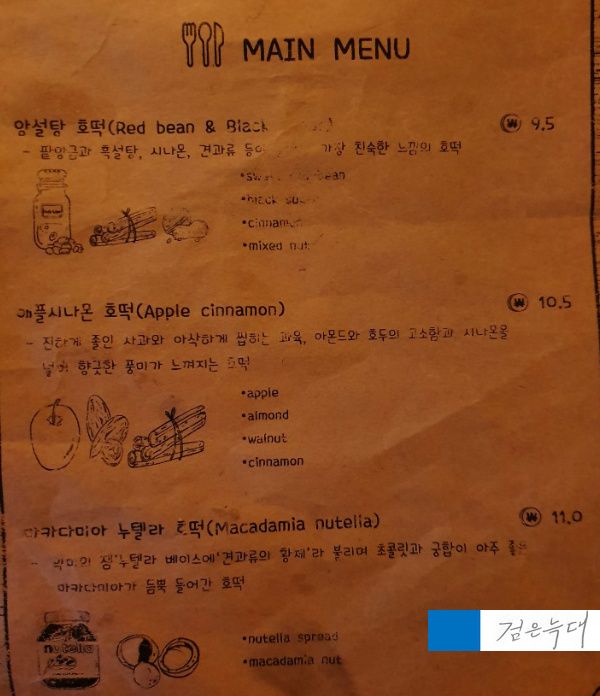 MAIN MENU
앙설탕 호떡(Red bean & Black
₩ 9.5
- 팥앙금과 흑설탕, 시나몬, 견과류 가장 친숙한 느낌의 호떡
bean
•black
•cinnamon
•mixed nut
애플시나몬 호떡(Apple cinnamon)
₩ 10.5
- 진하게 졸인 사과와 아삭하게 씹히는 과육, 아몬드와 호두의 고소함과 시나몬을
넣어 향긋한 풍미가 느껴지는 호떡
•apple
•almond
•walnut
•cinnamon
마카다미아 누텔라 호떡(Macadamia nutella)
₩ 11.0
- 악마의 잼'누텔라 베이스에'견과류의 황제'라 불리며 초콜릿과 궁합이 아주 좋은
마카다미아가 듬뿍 들어간 호떡
nutella
•nutella spread
•macadamia nut
검은늑대